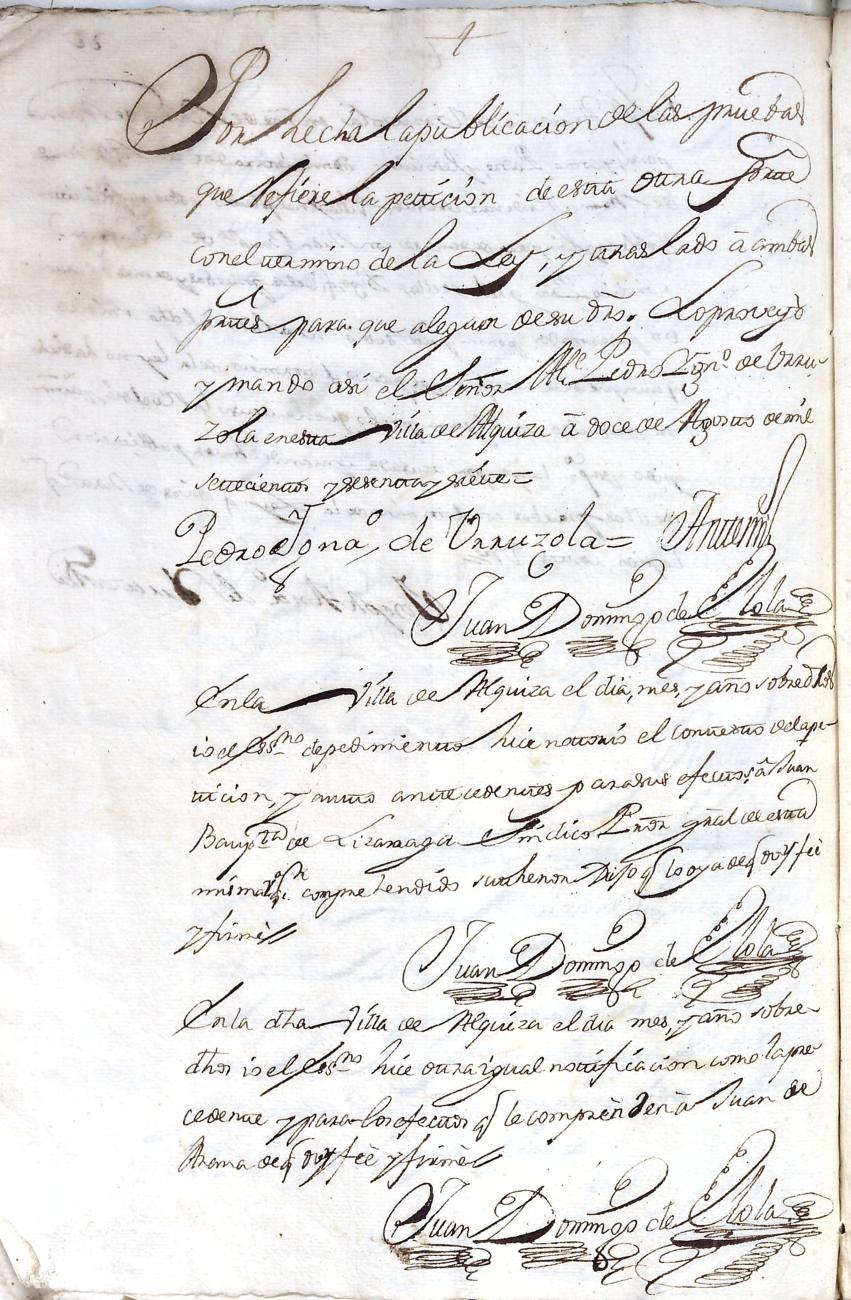 +
Por hecha la publicacion de las pruebas
que refiere la peticion de esta otra parte
con el termino de la Ley, y traslado â ambas
partes para que aleguen de su dro. Lo proveyo
y mando asi el Señor Alc.e Pedro Ign.o de Urru-
zola en esta Villa de Alquiza â doce de Agosto de mil
setecientos y sesenta y siete =
Pedro Igna.o de Urruzola = Antemi
Juan Domingo de Elola
En la Villa de Alquiza el dia, mes, y año sobredhos
io el Ess.no de pedimiento hice notorio el contexto de la pe-
ticion, y auto antecedentes para sus efectos, â Juan
Baup.ta de Lizarraga Sindico Pror gral de esta
misma comprehendido su thenor Dijo q lo oya de q doy feè
y firmè //
Juan Domingo de Elola
En la dha Villa de Alquiza el dia mes, y año sobre-
dhos io el Ess.no hice otra igual notificacion como la pre-
cedente y para los efectos q le comprènden â Juan de
Arama de q doy feè y firmè //
Juan Domingo de Elola